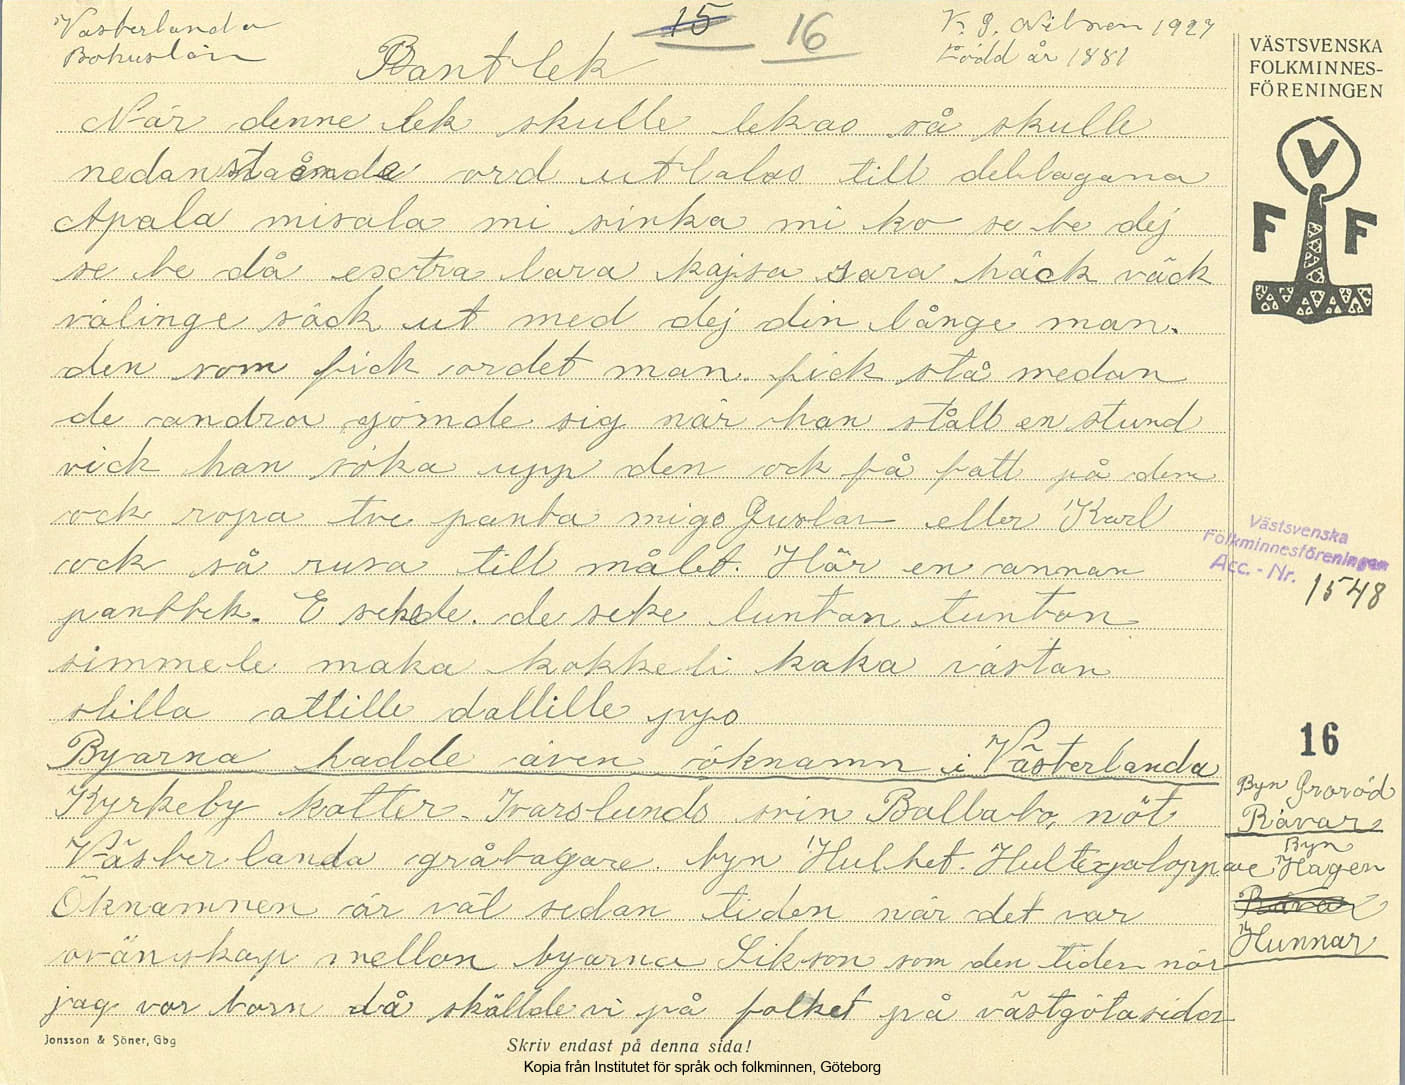 Västerlanda
Bohuslän
15 16
K. J. Nilsson 1927
Född år 1881
Pantlek
När denne lek skulle lekas så skulle
nedanstående ord uttalas till deltagana
Apala misala mi sinka mi ko se be dej
se be då exstra lara kajsa sara häck väck
välinge säck ut med dej din långe man.
den som fick ordet man. fick stå medan
de andra gömde sig när han stått en stund
vick han söka upp den ock få fatt på dem
ock ropa tre panta migo Gustav eller Karl
ock så rusa till målet. Här en annan
pantlek. E sekede. de seke luntan tuntan
simmele maka kokkeli kaka västan
stilla attille dallille ppo
Byarna hadde även öknamn i Västerlanda
Kyrkeby katter. Ivarslunds svin Ballabo, nöt
Västerlanda gråbågare. byn Hultet. Hultegaloppare
Öknamnen är väl sedan tiden när det var
ovänskap mellan byarna Likson som den tiden när
jag var barn då skällde vi på folket på västgötasidan
Jonsson & Söner, Gbg
Skriv endast på denna sida!
Kopia från Institutet för språk och folkminnen, Göteborg
VÄSTSVENSKA
FOLKMINNES-
FÖRENINGEN
V
F F
Västsvenska
Folkminnesföreningen
Acc. - Nr. 1548
16
Byn Groröd
Rävar
Byn
Hagen
Hunnar